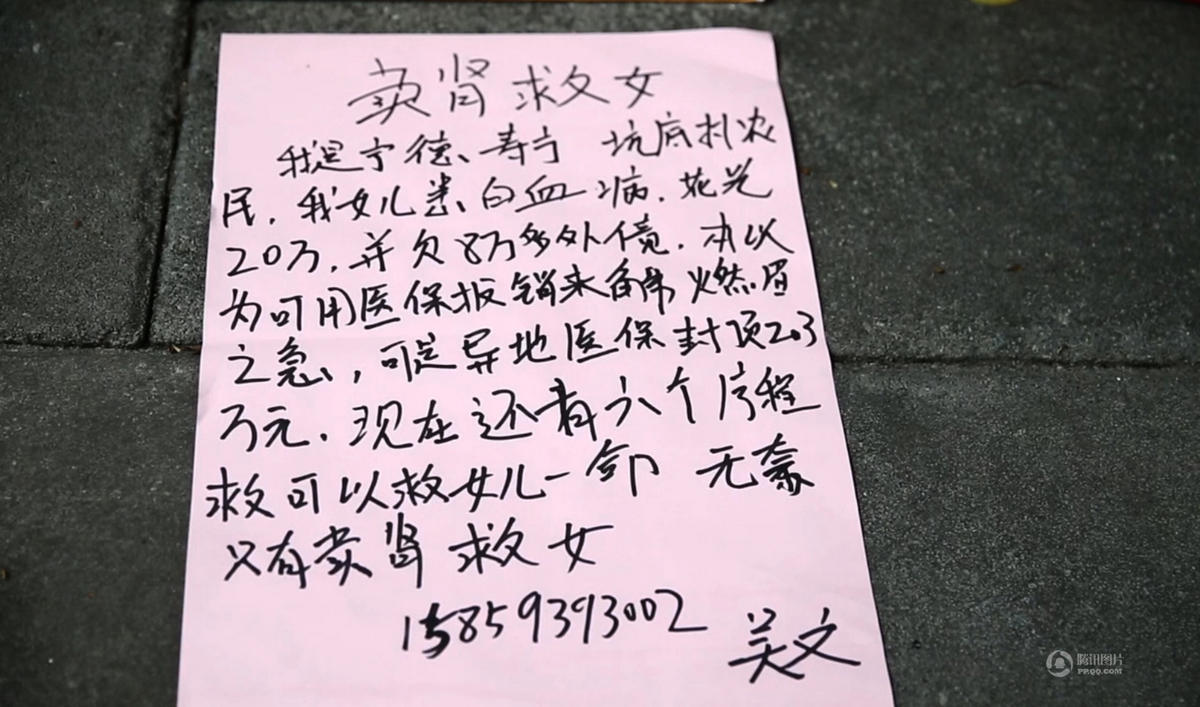 卖肾救女
我是宁德、寿宁 坑底村农
民，我女儿患白血病，花光
20万，并欠8万多外债，本以
为可用医保报销来解燃眉
之急，可是异地医保封顶2.3
万元，现在还有六个疗程
救可以救女儿一命 无奈
只有卖肾救女
15859393002 吴文
腾讯图片
PP.QQ.COM